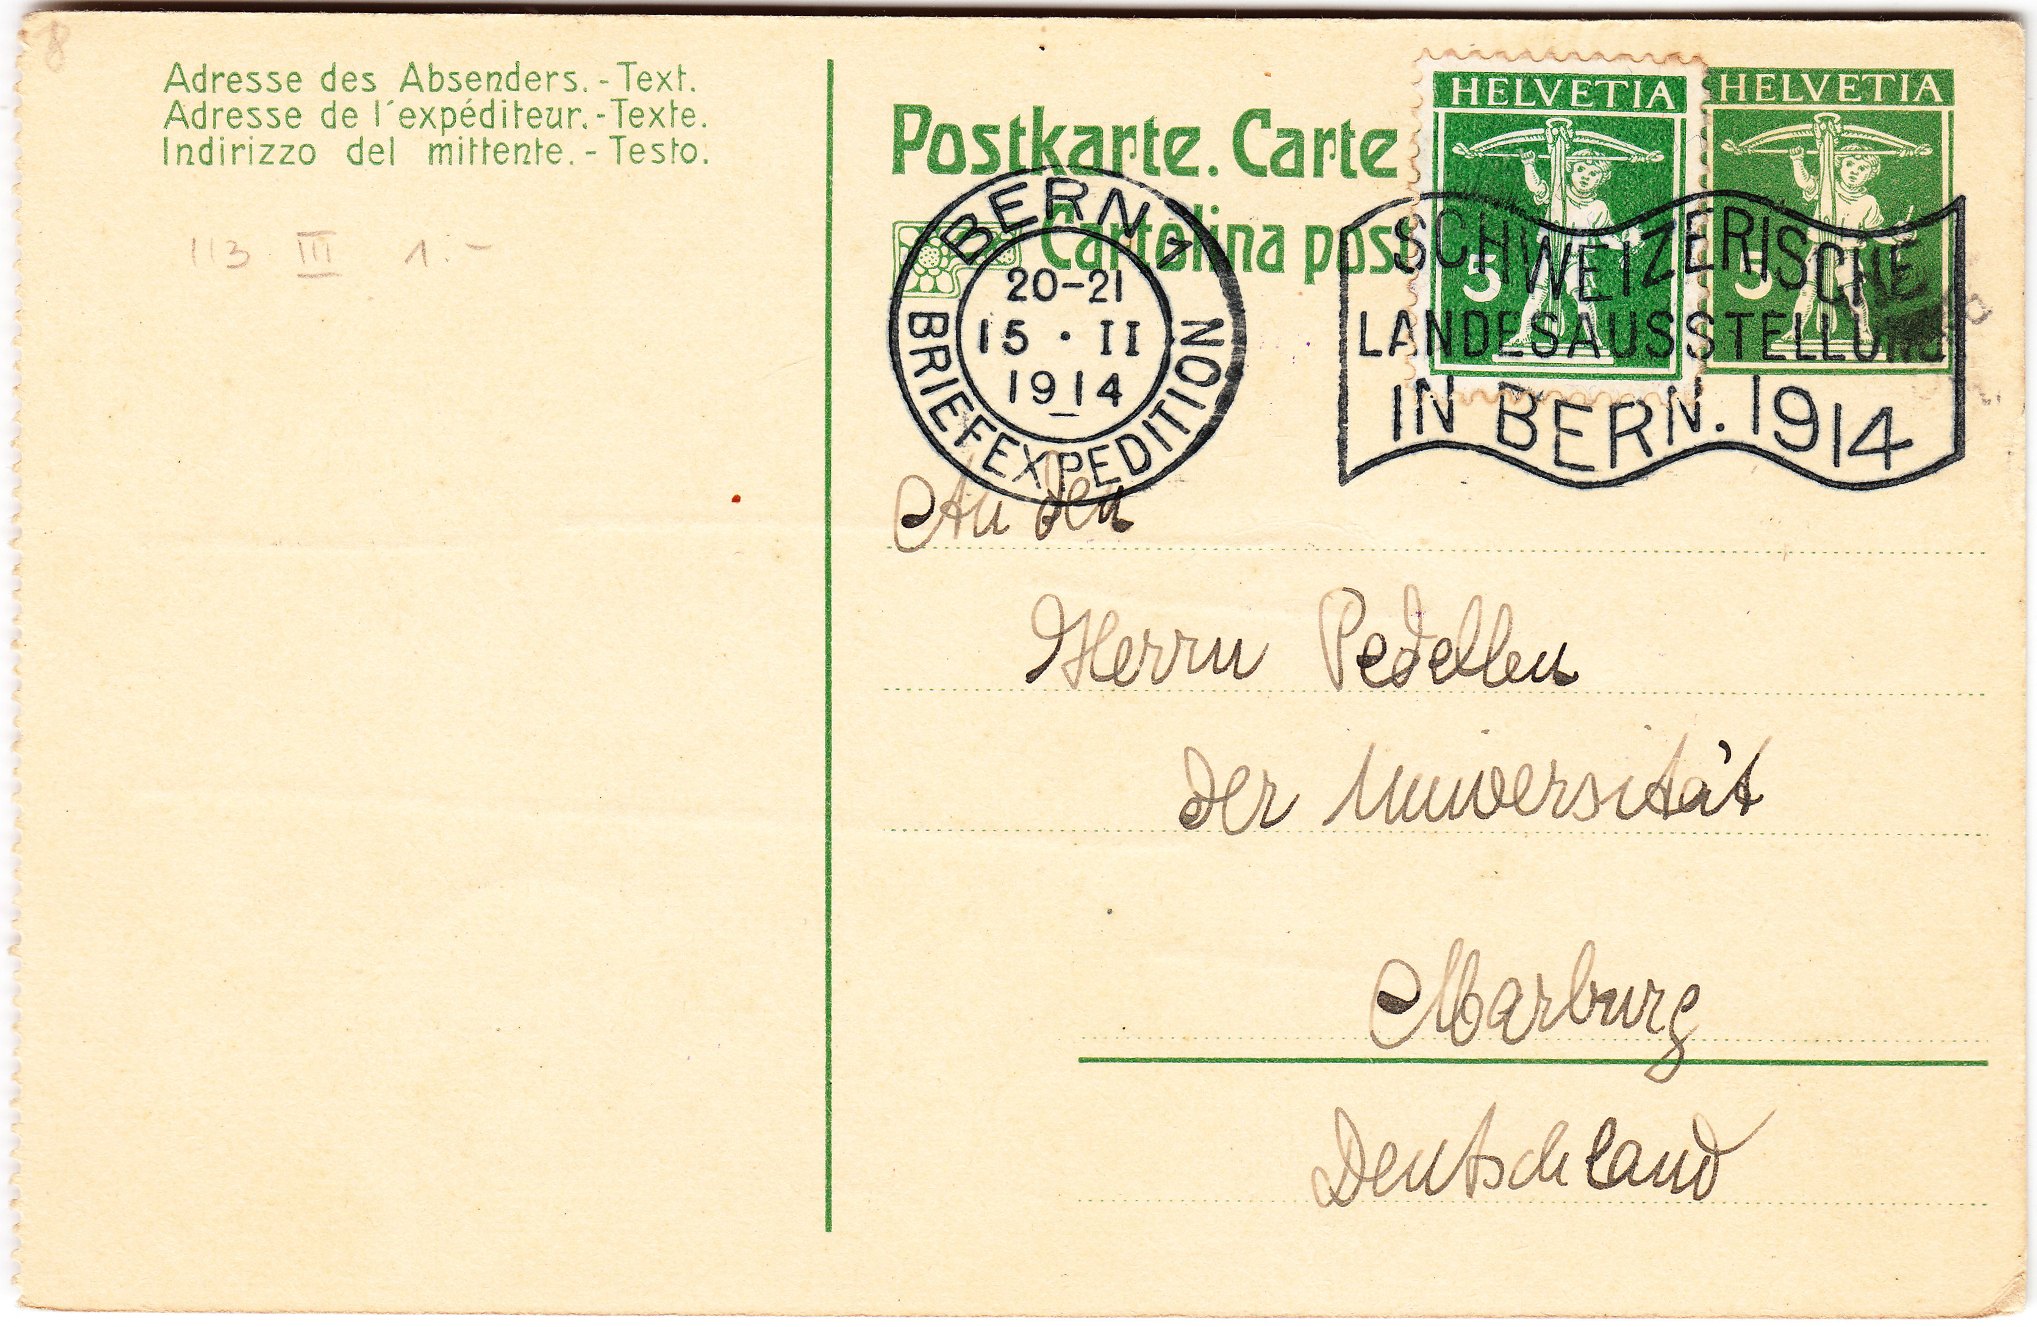 8
Adresse des Absenders. - Text.
Adresse de l'expéditeur. - Texte.
Indirizzo del mittente. - Testo.
113 III 1.-
Postkarte. Carte
Cartolina pos
HELVETIA
5
HELVETIA
5
BERN 1
20-21
15 · II
1914
BRIEFEXPEDITION
SCHWEIZERISCHE
LANDESAUSSTELLUNG
IN BERN. 1914
An den
Herrn Pedellen
der Universität
Marburg
Deutschland